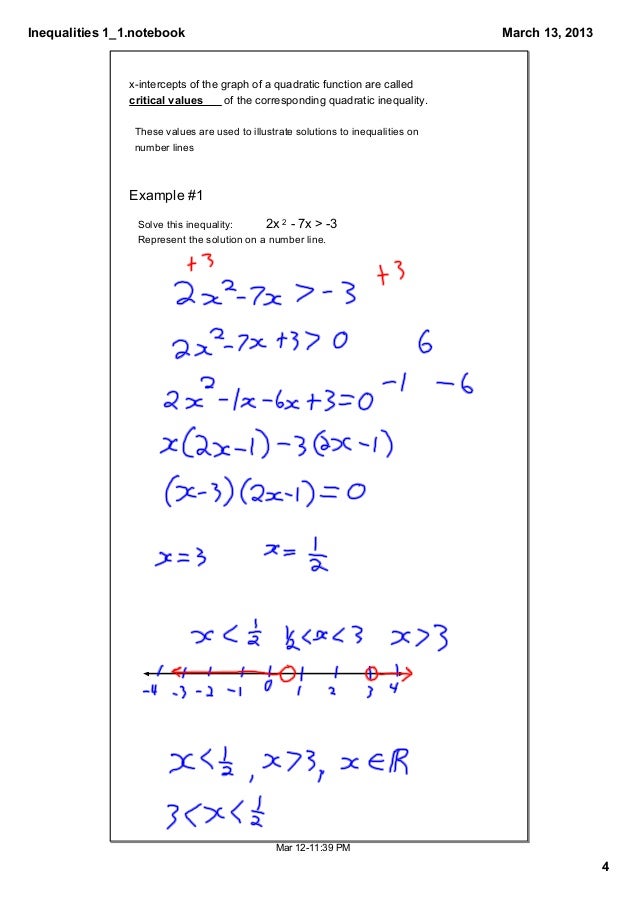 Inequalities 1_1.notebook
March 13, 2013
x-intercepts of the graph of a quadratic function are called
critical values___ of the corresponding quadratic inequality.
These values are used to illustrate solutions to inequalities on
number lines
Example #1
Solve this inequality: 2x² - 7x > -3
Represent the solution on a number line.
+3 +3
2x²-7x > -3
2x²-7x+3>0 6
2x²-1x-6x+3=0 -1 -6
x(2x-1)-3(2x-1)
(x-3)(2x-1)=0
x=3 x=1/2
x<1/2 1/2<x<3 x>3
-4 -3 -2 -1 0 1 2 3 4
x<1/2, x>3, x∈ℝ
3<x<1/2
Mar 12-11:39 PM
4